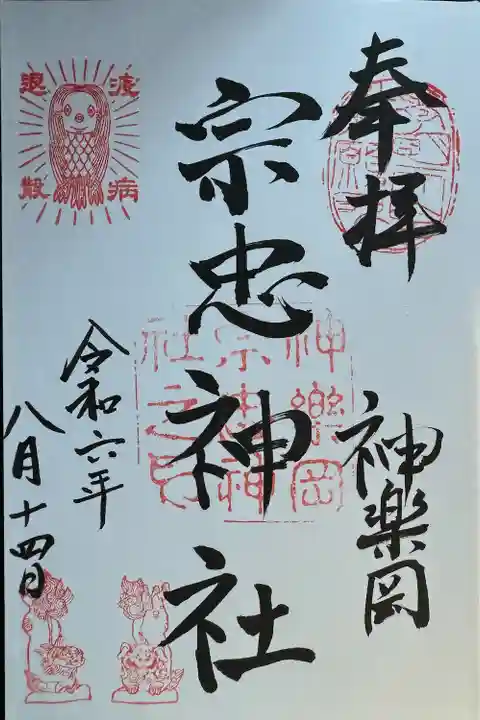 奉拝
神楽岡
宗忠神社
令和六年
八月十四日
疫病
退散
神樂岡
宗忠神
社之印